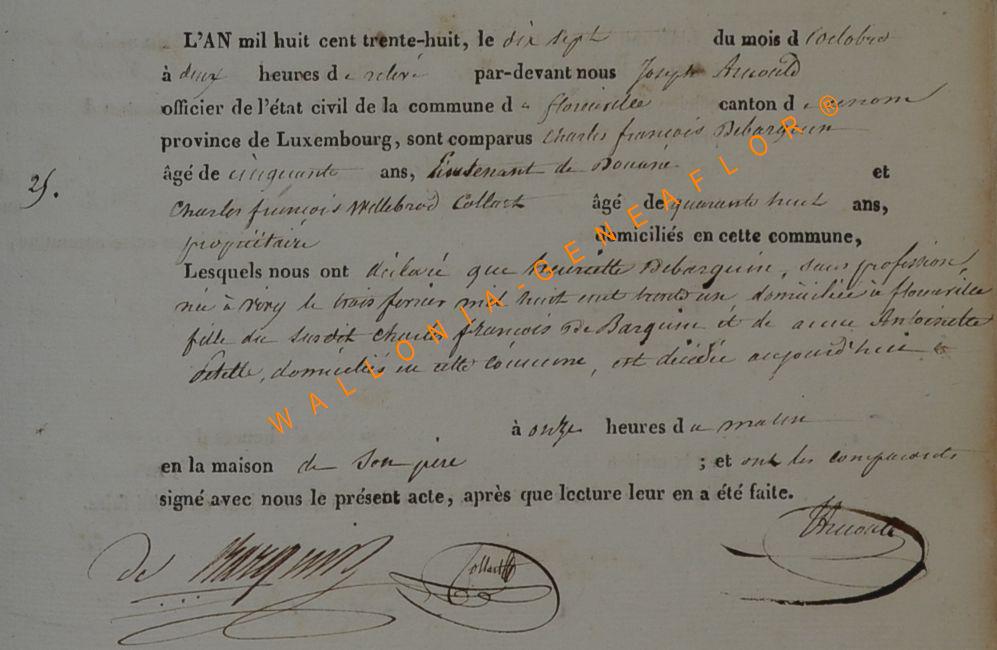 L'AN mil huit cent trente-huit, le dix sept du mois d'octobre
à deux heures de relevé par-devant nous Joseph Arnould
officier de l'état civil de la commune de florenville canton d
province de Luxembourg, sont comparus Charles françois Debarquin
âgé de cinquante ans, Lieutenant de Douane et
25.
Charles françois Willebrod Collart âgé de quarante huit ans,
propriétaire domiciliés en cette commune,
Lesquels nous ont déclaré que henriette Debarquin, sans profession,
née à le trois fevrier mil huit cent trente un domiciliée à florenville
fille du susdit Charles françois de Barquin et de anne Antoinette
domiciliés en cette commune, est décédée aujourd'hui
à onze heures du matin
en la maison de son père ; et ont les comparants
signé avec nous le présent acte, après que lecture leur en a été faite.
de Barquin Collart Arnould
WALLONIA-GENEAFLOR®